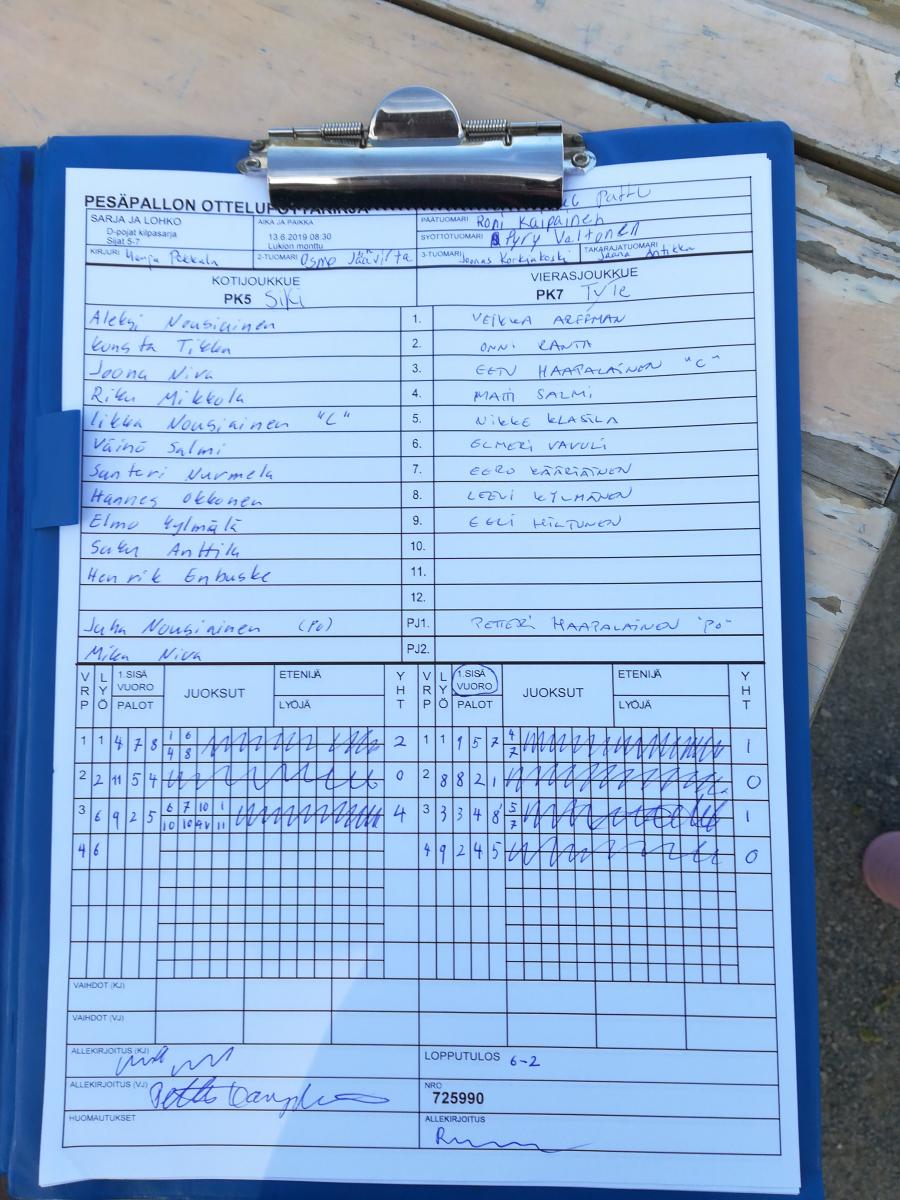 PESÄPALLON OTTELUPÖYTÄKIRJA
SARJA JA LOHKO
D-pojat kilpasarja
Sijat 5-7
AIKA JA PAIKKA
13.6.2019 08:30
Lukion monttu
PÄÄTUOMARI Roni Kaipainen
SYÖTTÖTUOMARI Pyry Valtonen
KIRJURI Pekkala
2-TUOMARI Osmo
3-TUOMARI Joonas Korkiakoski
TAKARAJATUOMARI Jaana Antikka
KOTIJOUKKUE
PK5 SiKi
VIERASJOUKKUE
PK7 TyTe
Aleksi Nousiainen 1. VEIKKA ARFFMAN
Kunsta Tikka 2. ONNI RANTA
Joona Niva 3. EETU HAAPALAINEN "C"
Riku Mikkola 4. MATTI SALMI
Iikka Nousiainen "C" 5. NIKKE KLASILA
Väinö Salmi 6. ELMERI VAVULI
Santeri Nurmela 7. EERO KÄÄRIÄINEN
Hannes Okkonen 8. LEEVI KYLMÄNEN
Elmo Kylmälä 9. EELI HILTUNEN
Saku Anttila 10.
Henrik Enbuske 11.
12.
Juha Nousiainen (PO) PJ1. PETTERI HAAPALAINEN "PO"
Mika Niva PJ2.
VRP LYÖ 1.SISÄ VUORO PALOT JUOKSUT ETENIJÄ LYÖJÄ YHT VRP LYÖ 1.SISÄ VUORO PALOT JUOKSUT ETENIJÄ LYÖJÄ YHT
1 1 4 7 8 1 6 2 1 1 9 5 7 4 1
4 8 7
2 2 11 5 4 0 2 8 8 2 1 0
3 6 9 2 5 6 7 10 1 4 3 3 3 4 8 5 1
10 10 11 7
4 6 4 9 2 4 5 0
VAIHDOT (KJ)
VAIHDOT (VJ)
ALLEKIRJOITUS (KJ)
LOPPUTULOS 6-2
ALLEKIRJOITUS (VJ)
NRO
725990
HUOMAUTUKSET
ALLEKIRJOITUS